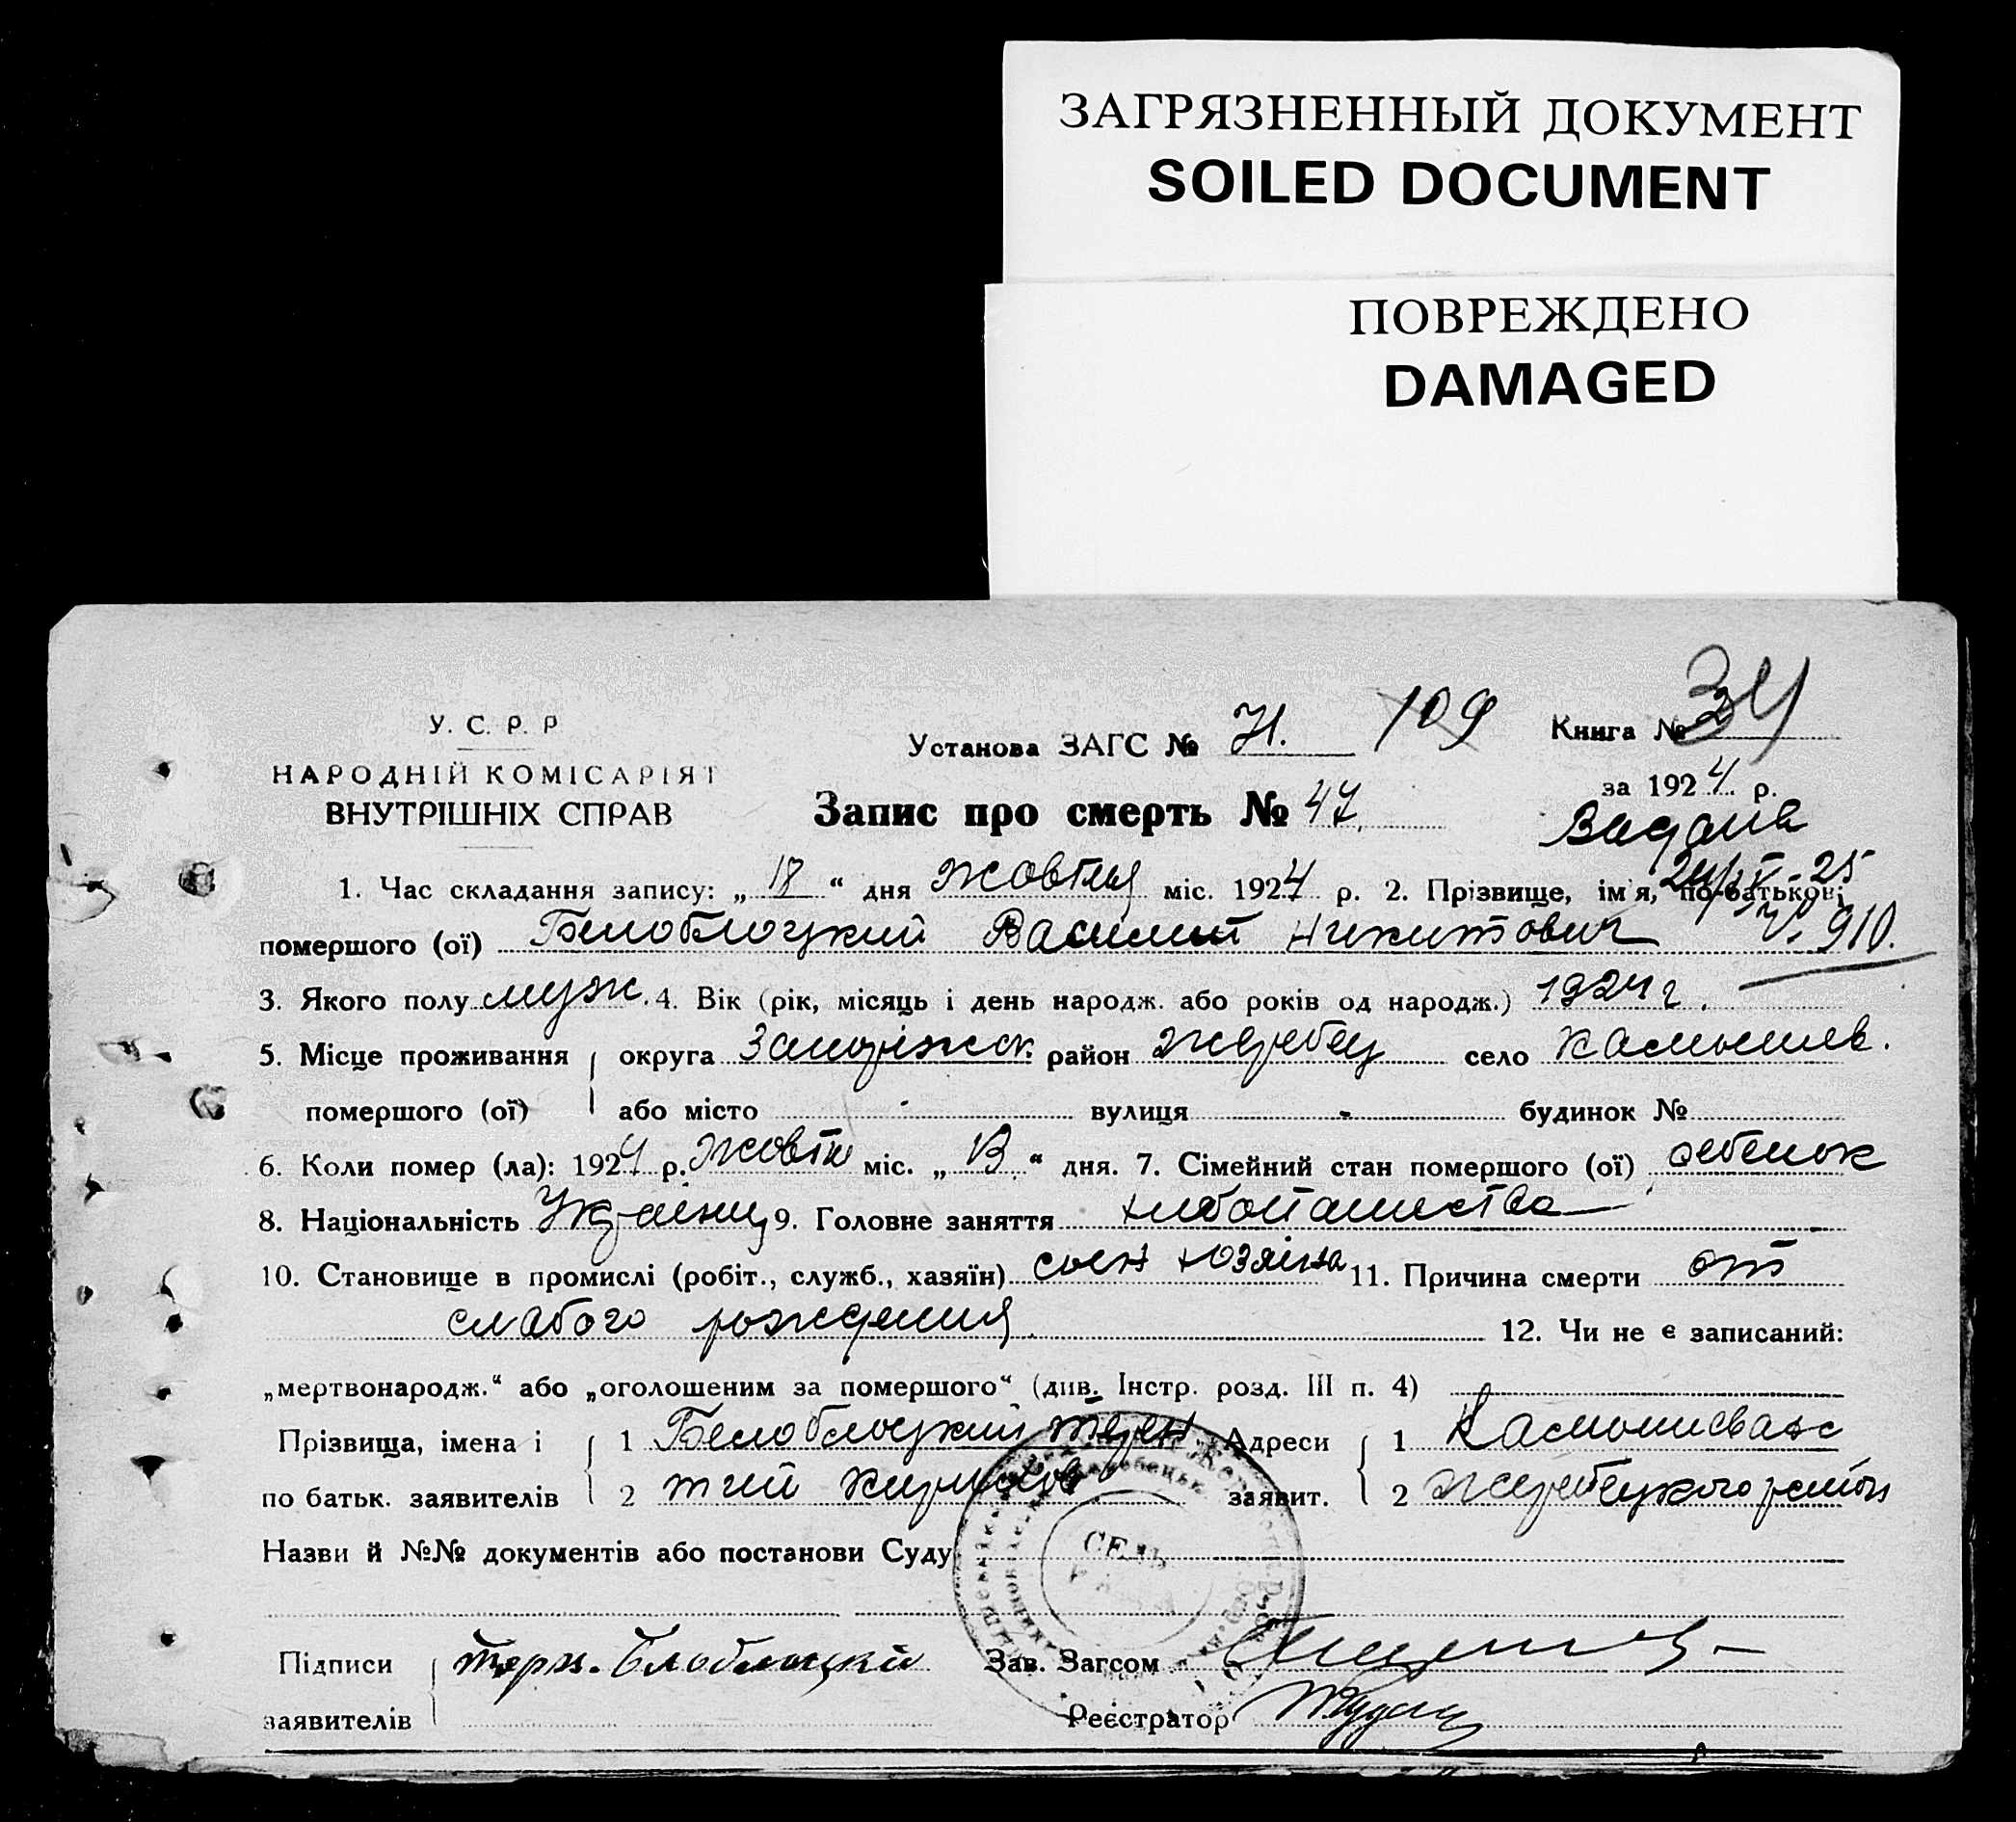 ЗАГРЯЗНЕННЫЙ ДОКУМЕНТ
SOILED DOCUMENT
ПОВРЕЖДЕНО
DAMAGED
У. С. Р. Р
НАРОДНІЙ КОМІСАРІЯТ
ВНУТРІШНІХ СПРАВ
Установа ЗАГС № 109 Книга № 34
за 1924 р.
Запис про смерть № 47
1. Час складання запису: „ 18 “ дня жовтня міс. 1924 р. 2. Прізвище, ім'я, по-батькові
помершого (ої) Белоблоцкий Василий Никитович 910.
3. Якого полу муж. 4. Вік (рік, місяць і день народж. або років од народж.) 1924 г.
5. Місце проживання округа Запоріжск. район Жеребец село Камышев.
помершого (ої) або місто - вулиця - будинок №
6. Коли помер (ла): 1924 р. жовтн міс. „ “ дня. 7. Сімейний стан помершого (ої) ребенок
8. Національність Українец 9. Головне заняття хлебопашество
10. Становище в промислі (робіт., служб., хазяїн) сын хозяїна 11. Причина смерти от
слабого рождения 12. Чи не є записаний:
„мертвонародж.“ або „оголошеним за помершого“ (див. Інстр. розд. III п. 4)
Прізвища, імена і 1 Белоблоцкий Терен Адреси 1 Камышеваха
по батьк. заявителів 2 тий заявит. 2 Жеребецкого район
Назви й №№ документів або постанови Суду
СЕЛЬ
Підписи Зав. Загсом
заявителів Реєстратор